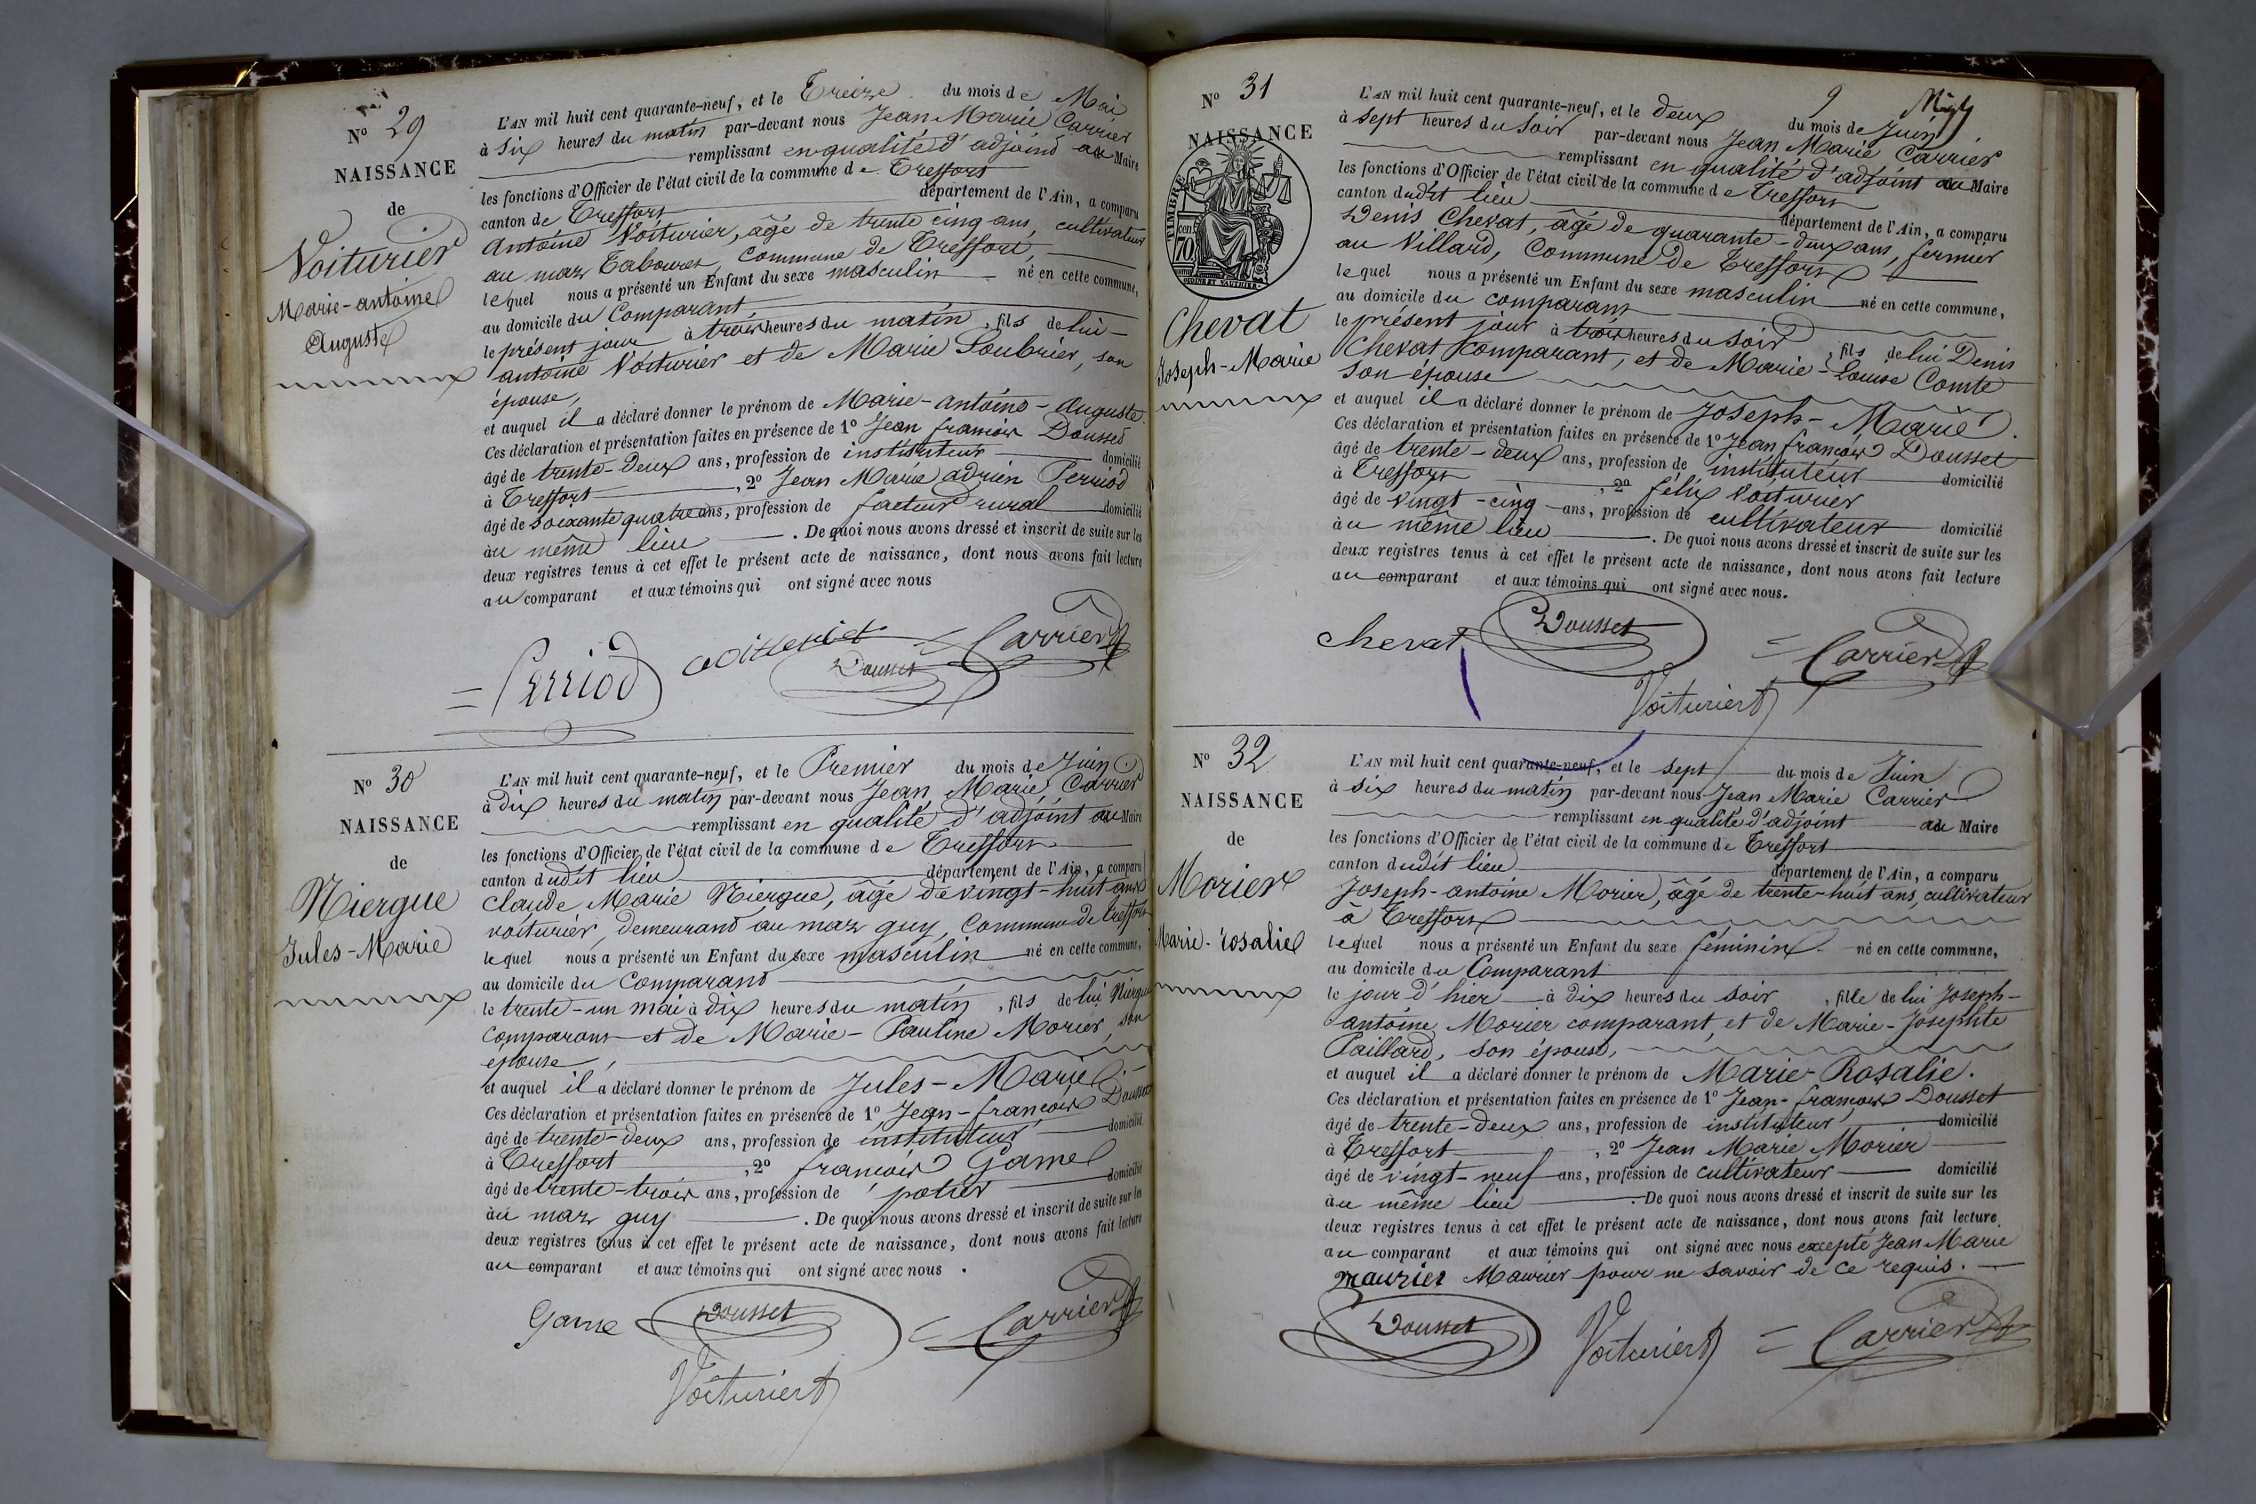 N° 29
NAISSANCE
de
Voiturier
Marie-antoine
Auguste
L'AN mil huit cent quarante-neuf, et le Treize du mois de Mai
à six heures du matin par-devant nous Jean Marie Carrier
remplissant en qualité d'adjoint au Maire
les fonctions d'Officier de l'état civil de la commune de Treffort
canton de Treffort département de l'Ain, a comparu
Antoine Voiturier, âgé de trente cinq ans, cultivateur
au mas Tabouret, Commune de Treffort,
lequel nous a présenté un Enfant du sexe masculin né en cette commune,
au domicile du Comparant
le présent jour à trois heures du matin, fils de lui
antoine Voiturier et de Marie Soubrier, son
épouse,
et auquel il a déclaré donner le prénom de Marie-antoine-Auguste.
Ces déclaration et présentation faites en présence de 1° Jean françois Dousset
âgé de trente-deux ans, profession de instituteur domicilié
à Treffort, 2° Jean Marie adrien Perriod
âgé de soixante quatre ans, profession de facteur rural domicilié
au même lieu. De quoi nous avons dressé et inscrit de suite sur les
deux registres tenus à cet effet le présent acte de naissance, dont nous avons fait lecture
au comparant et aux témoins qui ont signé avec nous
Perriod Dousset Carrier
N° 30
NAISSANCE
de
Niergue
Jules-Marie
L'AN mil huit cent quarante-neuf, et le Premier du mois de Juin
à dix heures du matin par-devant nous Jean Marie Carrier
remplissant en qualité d'adjoint au Maire
les fonctions d'Officier de l'état civil de la commune de Treffort
canton dudit lieu département de l'Ain, a comparu
Claude Marie Niergue, âgé de vingt-huit ans
voiturier, demeurant au mas guy, Commune de treffort
lequel nous a présenté un Enfant du sexe masculin né en cette commune,
au domicile du Comparant
le trente-un mai à dix heures du matin, fils de lui Niergue
comparant et de Marie-Pauline Morier, son
épouse,
et auquel il a déclaré donner le prénom de Jules-Marie.
Ces déclaration et présentation faites en présence de 1° Jean-françois Dousset
âgé de trente-deux ans, profession de instituteur domicilié
à Treffort, 2° françois Game
âgé de trente-trois ans, profession de potier domicilié
au mas guy. De quoi nous avons dressé et inscrit de suite sur les
deux registres tenus à cet effet le présent acte de naissance, dont nous avons fait lecture
au comparant et aux témoins qui ont signé avec nous.
Game Dousset Carrier
Voiturier
9
N° 31
NAISSANCE
TIMBRE
70
Chevat
Joseph-Marie
L'AN mil huit cent quarante-neuf, et le deux du mois de Juin
à sept heures du soir par-devant nous Jean Marie Carrier
remplissant en qualité d'adjoint au Maire
les fonctions d'Officier de l'état civil de la commune de Treffort
canton dudit lieu département de l'Ain, a comparu
Denis Chevat, âgé de quarante-deux ans, fermier
au Villard, Commune de Treffort
lequel nous a présenté un Enfant du sexe masculin né en cette commune,
au domicile du comparant
le présent jour à trois heures du soir, fils de lui Denis
Chevat comparant, et de Marie-Louise Comte
son épouse
et auquel il a déclaré donner le prénom de Joseph-Marie.
Ces déclaration et présentation faites en présence de 1° Jean françois Dousset
âgé de trente-deux ans, profession de instituteur domicilié
à Treffort, 2° félix Voiturier
âgé de vingt-cinq ans, profession de cultivateur domicilié
au même lieu. De quoi nous avons dressé et inscrit de suite sur les
deux registres tenus à cet effet le présent acte de naissance, dont nous avons fait lecture
au comparant et aux témoins qui ont signé avec nous.
Chevat Dousset Carrier
Voiturier
N° 32
NAISSANCE
de
Morier
Marie-rosalie
L'AN mil huit cent quarante-neuf, et le sept du mois de Juin
à six heures du matin par-devant nous Jean Marie Carrier
remplissant en qualité d'adjoint au Maire
les fonctions d'Officier de l'état civil de la commune de Treffort
canton dudit lieu département de l'Ain, a comparu
Joseph-antoine Morier, âgé de trente-huit ans, cultivateur
à Treffort
lequel nous a présenté un Enfant du sexe féminin né en cette commune,
au domicile du Comparant
le jour d'hier à dix heures du soir, fille de lui Joseph-
antoine Morier comparant, et de Marie-Josephte
Paillard, son épouse,
et auquel il a déclaré donner le prénom de Marie-Rosalie.
Ces déclaration et présentation faites en présence de 1° Jean-françois Dousset
âgé de trente-deux ans, profession de instituteur domicilié
à Treffort, 2° Jean Marie Morier
âgé de vingt-neuf ans, profession de cultivateur domicilié
au même lieu. De quoi nous avons dressé et inscrit de suite sur les
deux registres tenus à cet effet le présent acte de naissance, dont nous avons fait lecture
au comparant et aux témoins qui ont signé avec nous excepté Jean Marie
maurier Maurier pour ne savoir de ce requis.
Dousset Voiturier Carrier